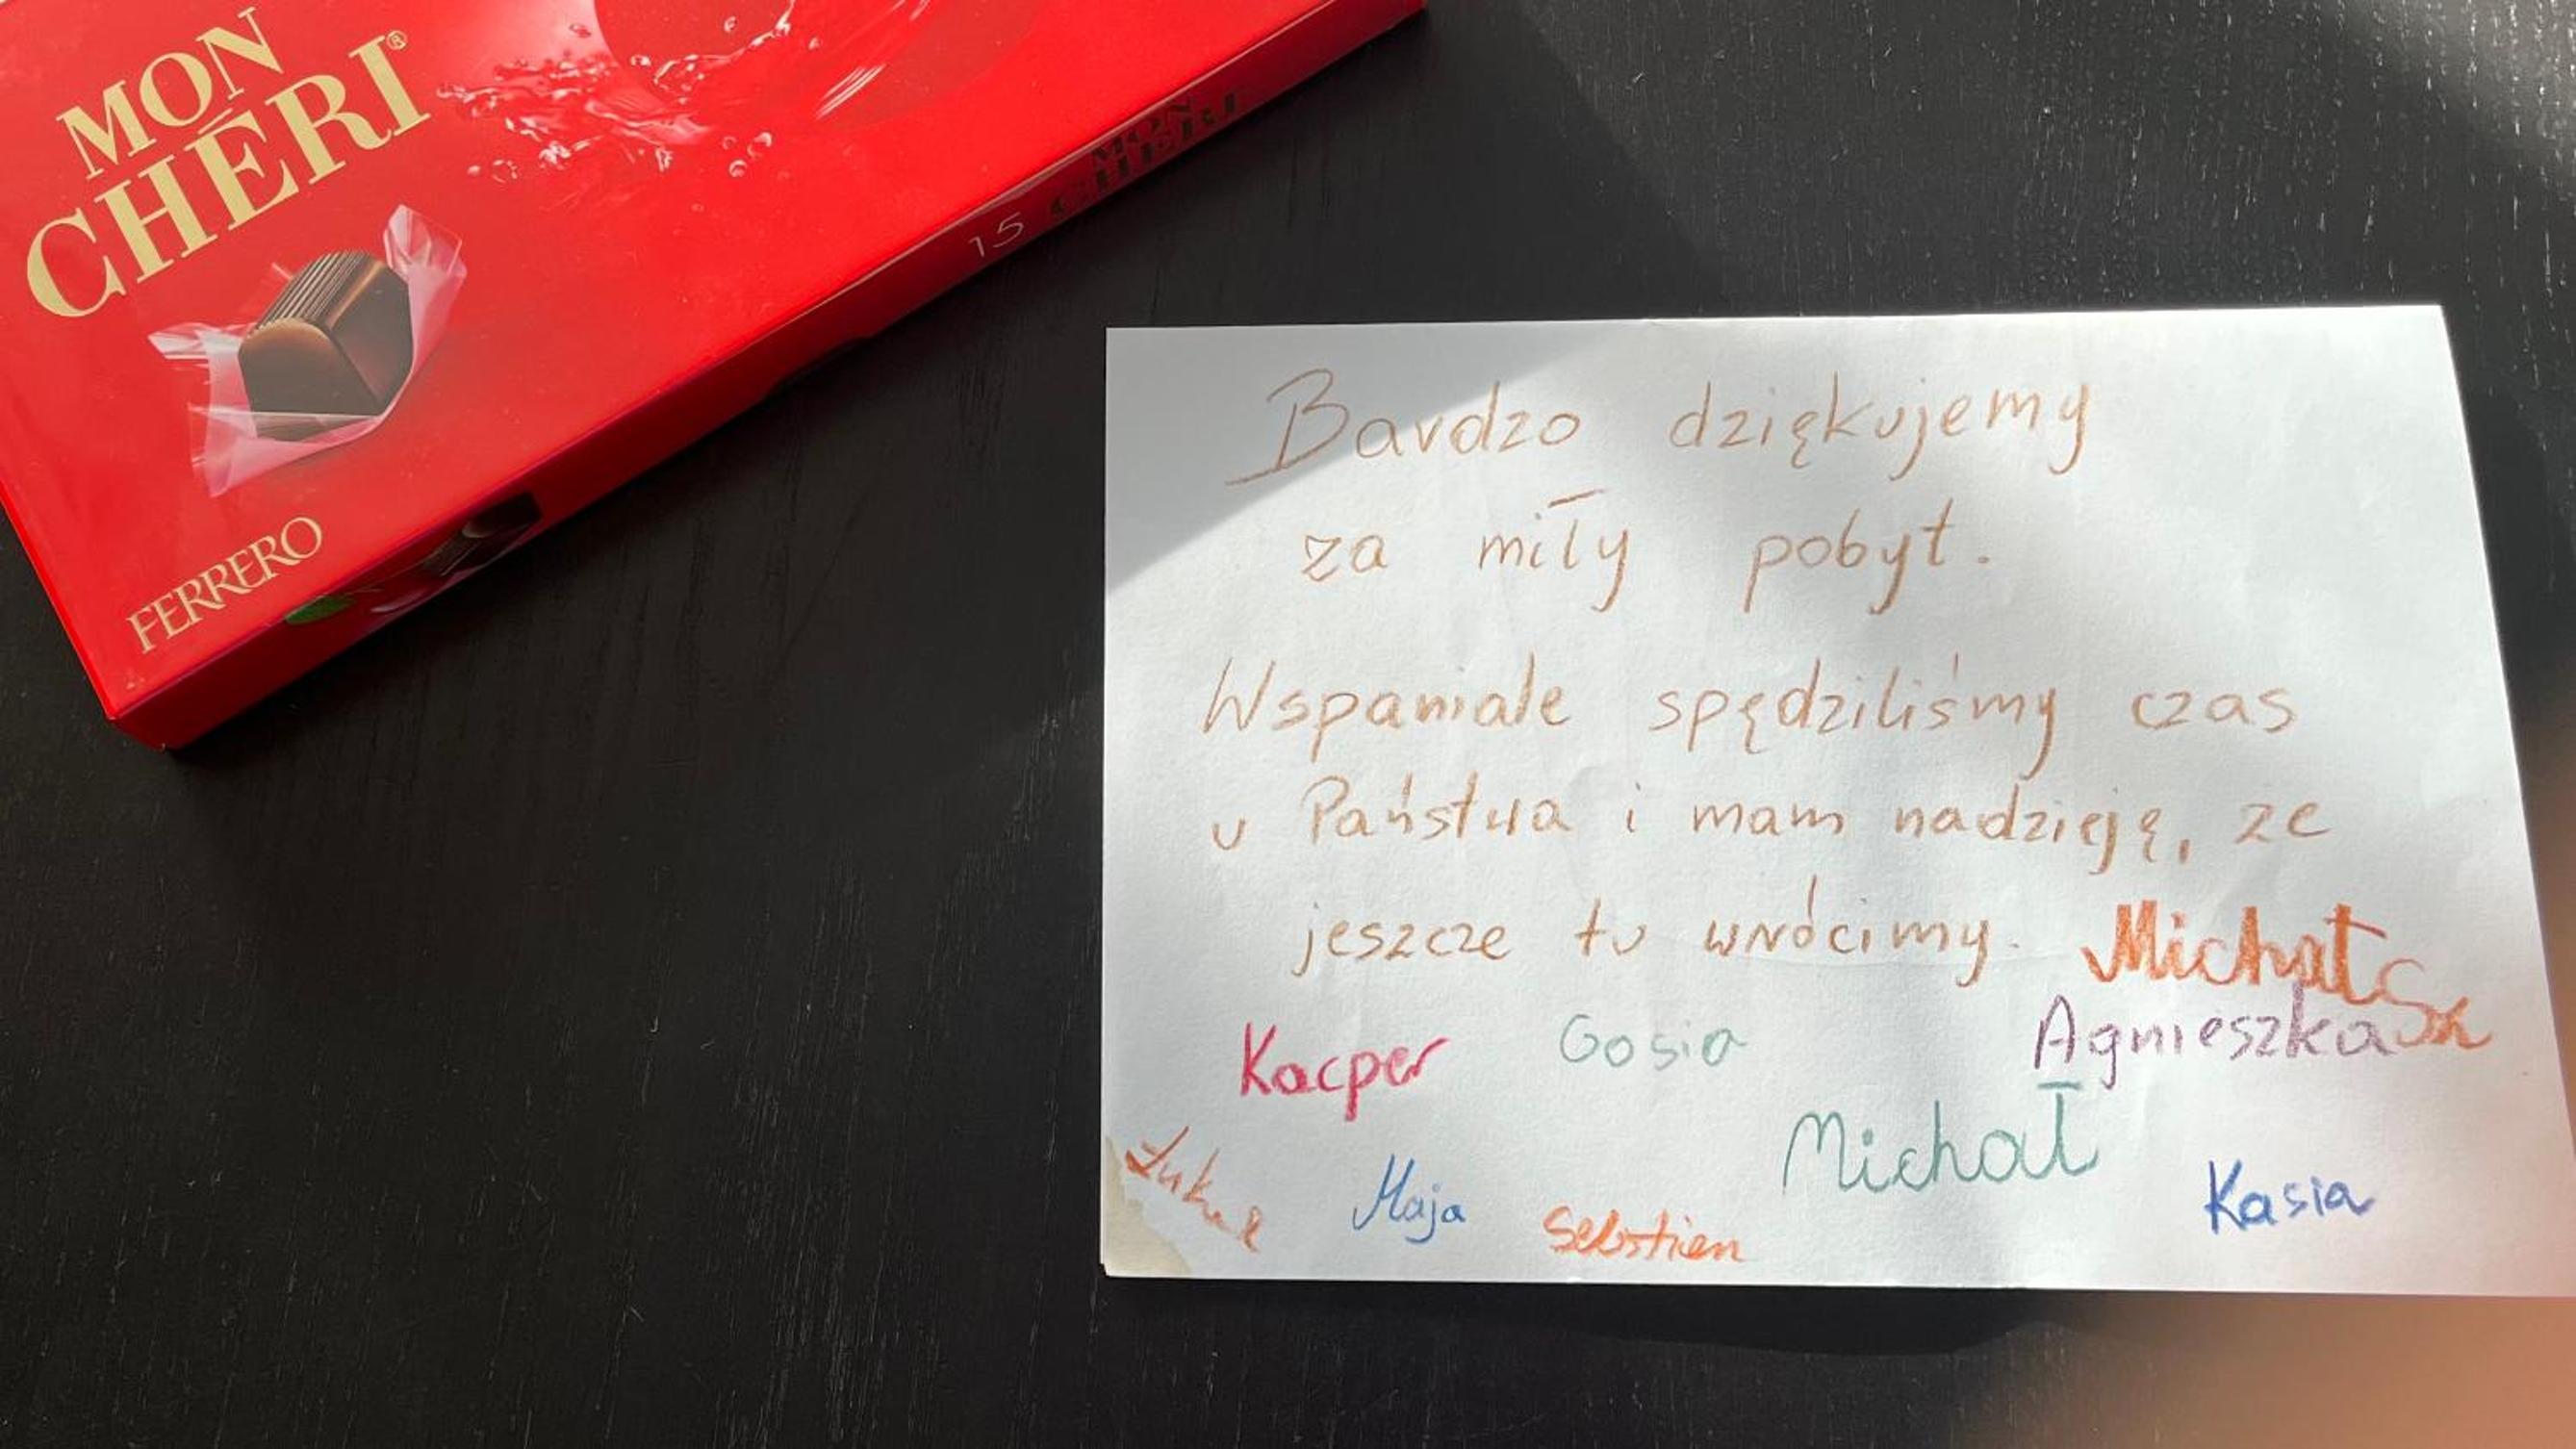 MON
CHÉRI®
FERRERO
15
MON
CHÉRI
Bardzo dziękujemy
za miły pobyt.
Wspaniale spędziliśmy czas
u Państwa i mam nadzieję, ze
jeszcze tu wrócimy. Michał
Kacper Gosia Agnieszka
Michał
Maja Kasia